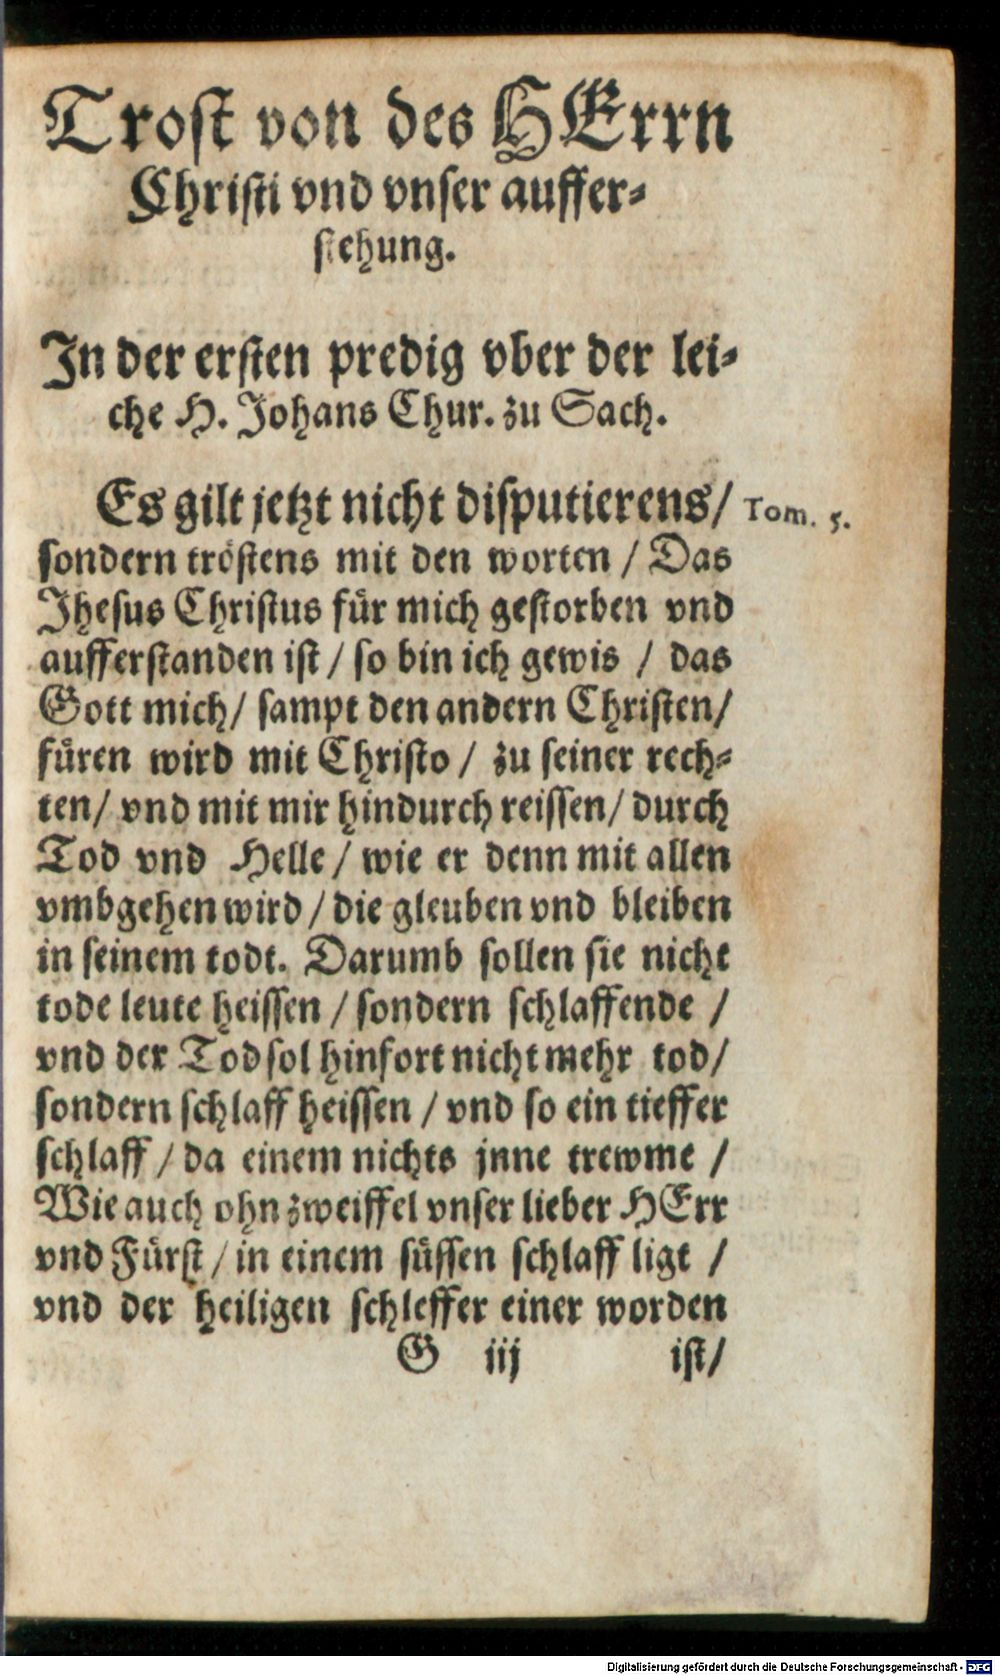 Trost von des HErrn
Christi vnd vnser auffer-
stehung.
In der ersten predig vber der lei-
che H. Johans Chur. zu Sach.
Es gilt jetzt nicht disputierens/
Tom. 5.
sondern tröstens mit den worten / Das
Jhesus Christus für mich gestorben vnd
aufferstanden ist / so bin ich gewis / das
Gott mich / sampt den andern Christen/
füren wird mit Christo / zu seiner rech-
ten/ vnd mit mir hindurch reissen/ durch
Tod vnd Helle / wie er denn mit allen
vmbgehen wird / die gleuben vnd bleiben
in seinem todt. Darumb sollen sie nicht
tode leute heissen / sondern schlaffende /
vnd der Tod sol hinfort nicht mehr tod/
sondern schlaff heissen / vnd so ein tieffer
schlaff / da einem nichts jnne trewme /
Wie auch ohn zweiffel vnser lieber HErr
vnd Fürst / in einem süssen schlaff ligt /
vnd der heiligen schleffer einer worden
G iij ist/
Digitalisierung gefördert durch die Deutsche Forschungsgemeinschaft - DFG